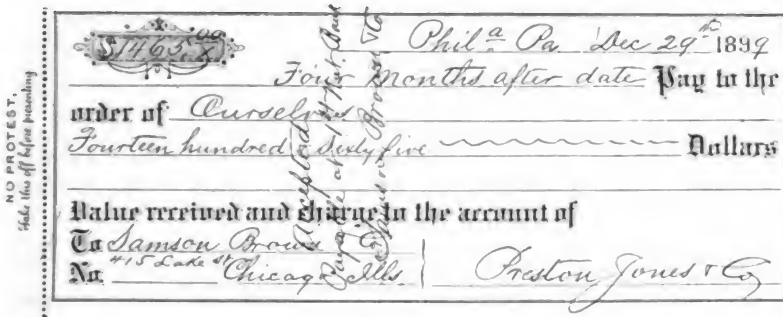 NO PROTEST.
Take this off before presenting
$1465.00/x
Phila Pa Dec 29th 1899
Four months after date Pay to the
order of Ourselves
Fourteen hundred & Sixty five Dollars
Value received and charge to the account of
To Samson Brown & Co
No 415 Lake St Chicago Ills
Preston Jones & Co
Accepted
Payable at 1st Nat. Bank
Samson Brown & Co